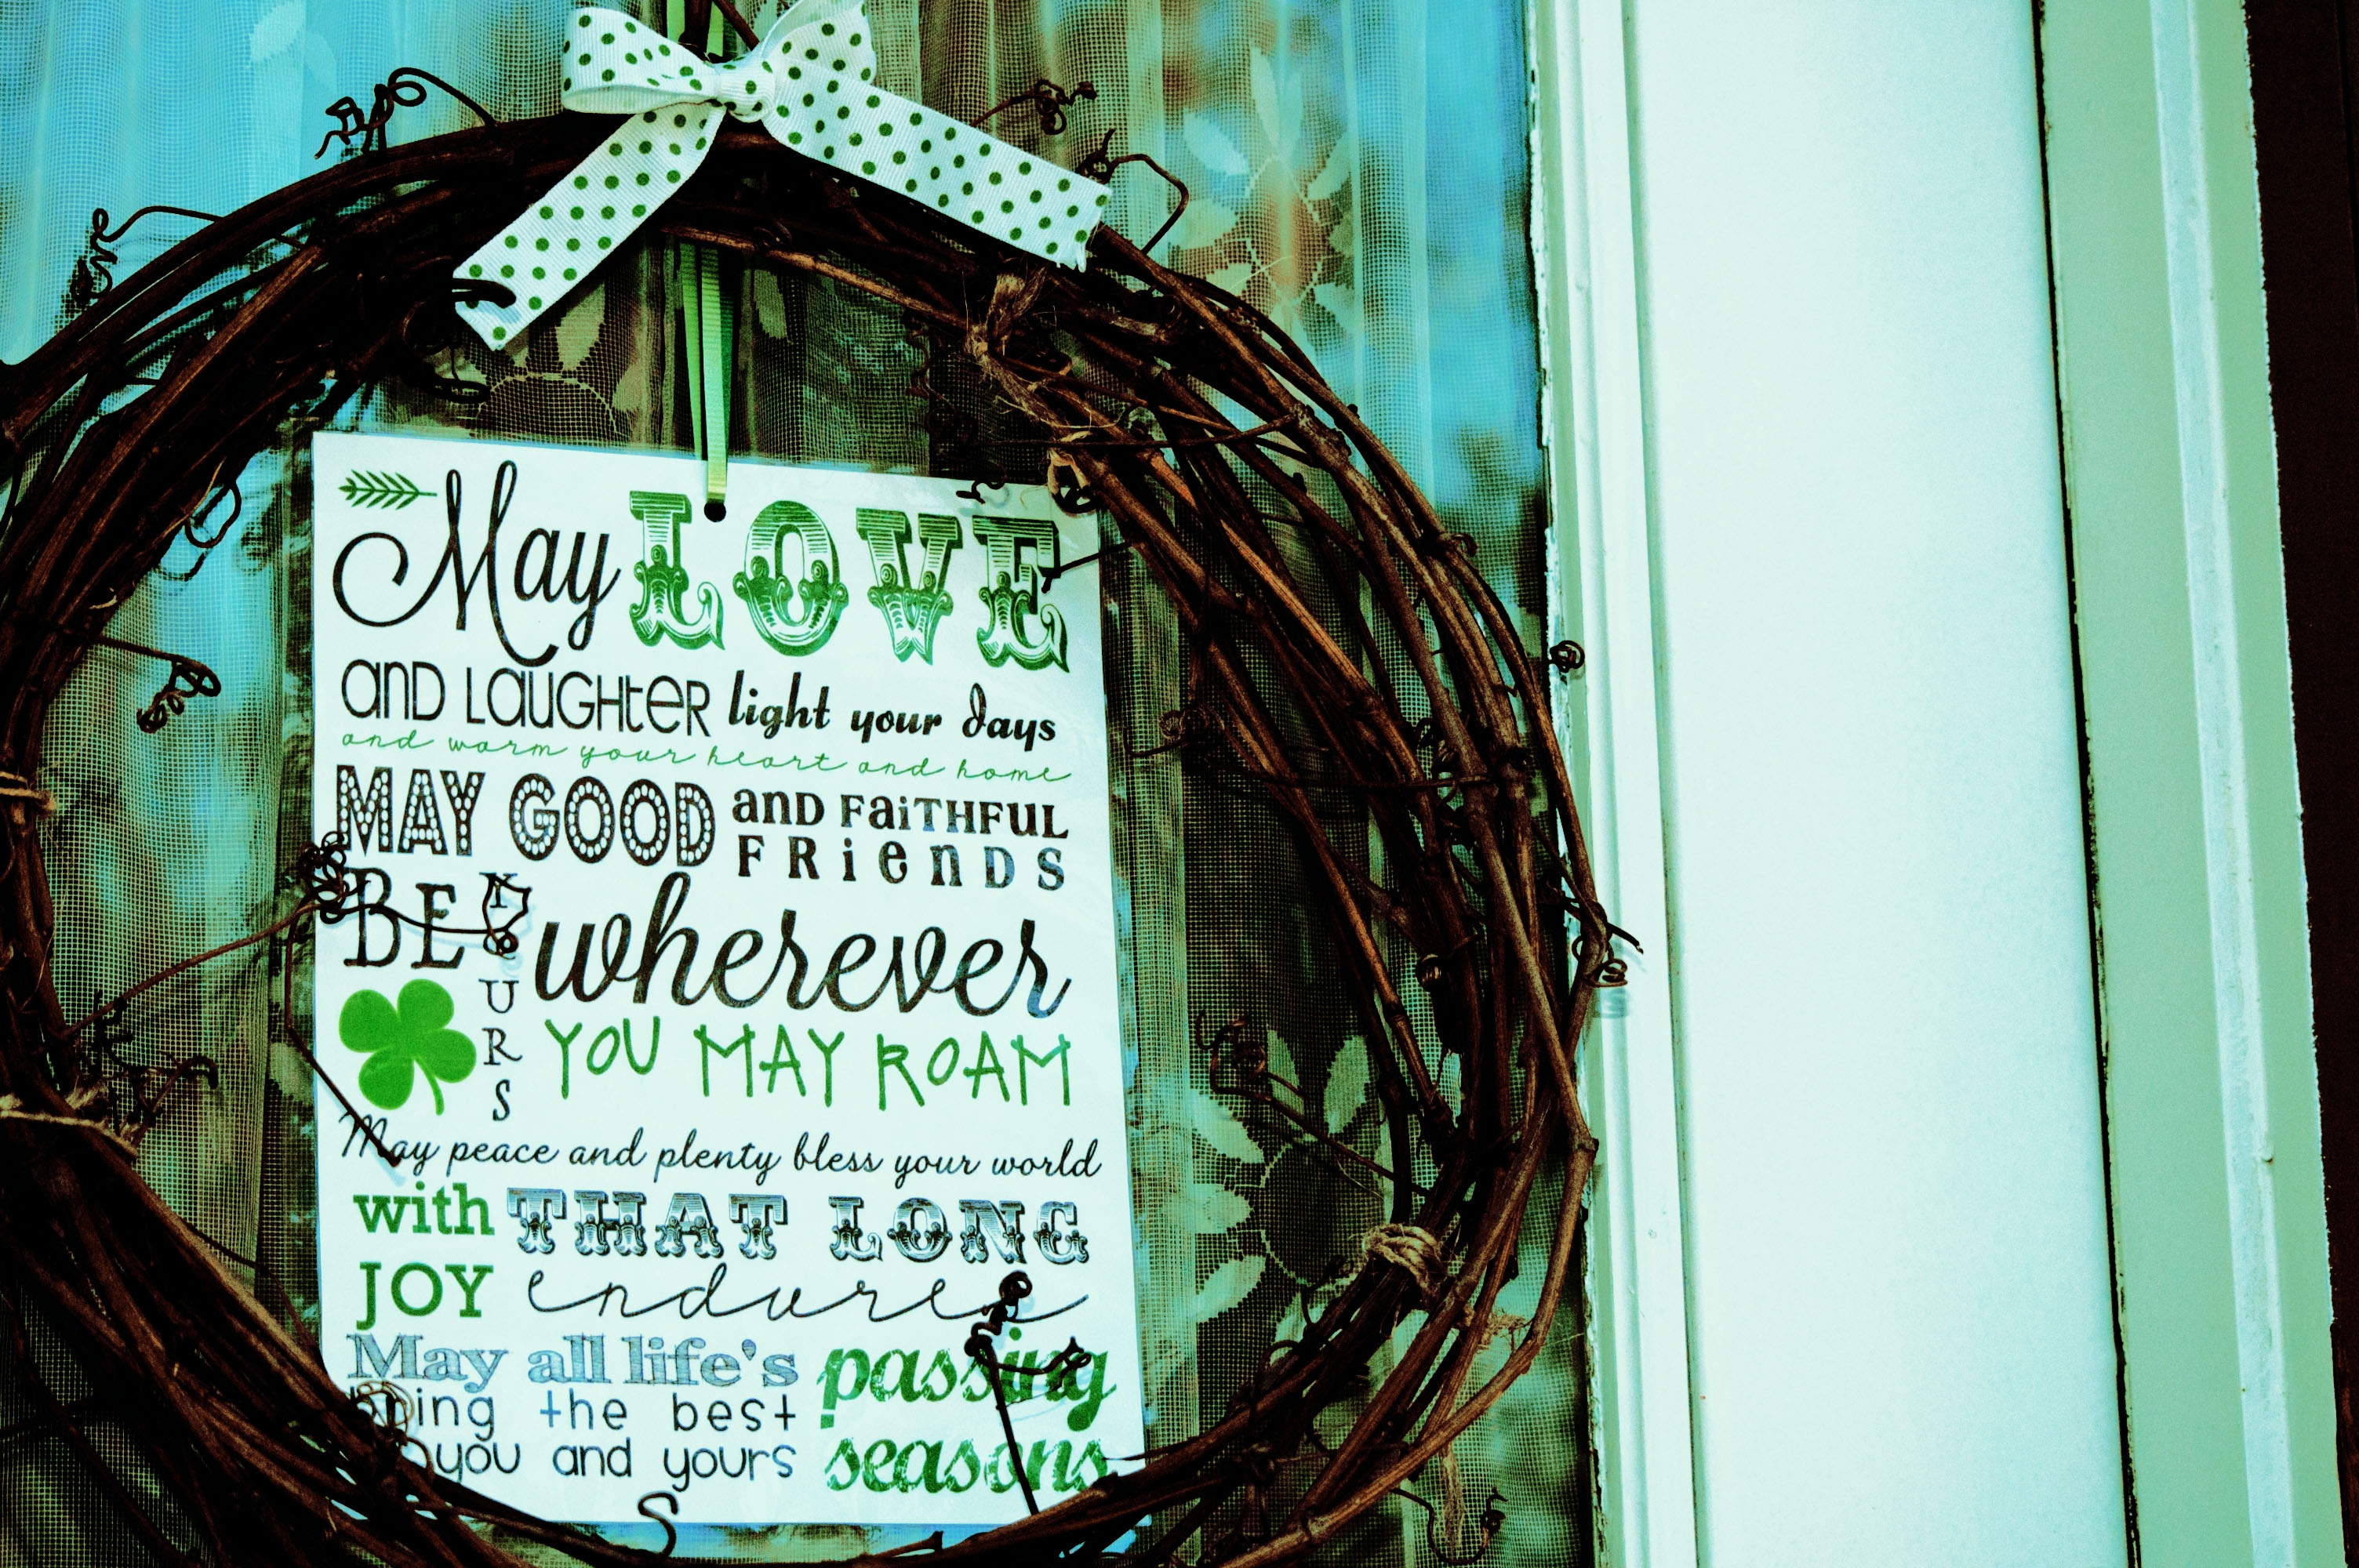 May LOVE
and Laughter light your days
and warm your heart and home
MAY GOOD and Faithful
Friends
BE YOURS wherever
YOU MAY ROAM
May peace and plenty bless your world
with THAT LONG
JOY endures
May all life's passing
bring the best seasons
you and yours